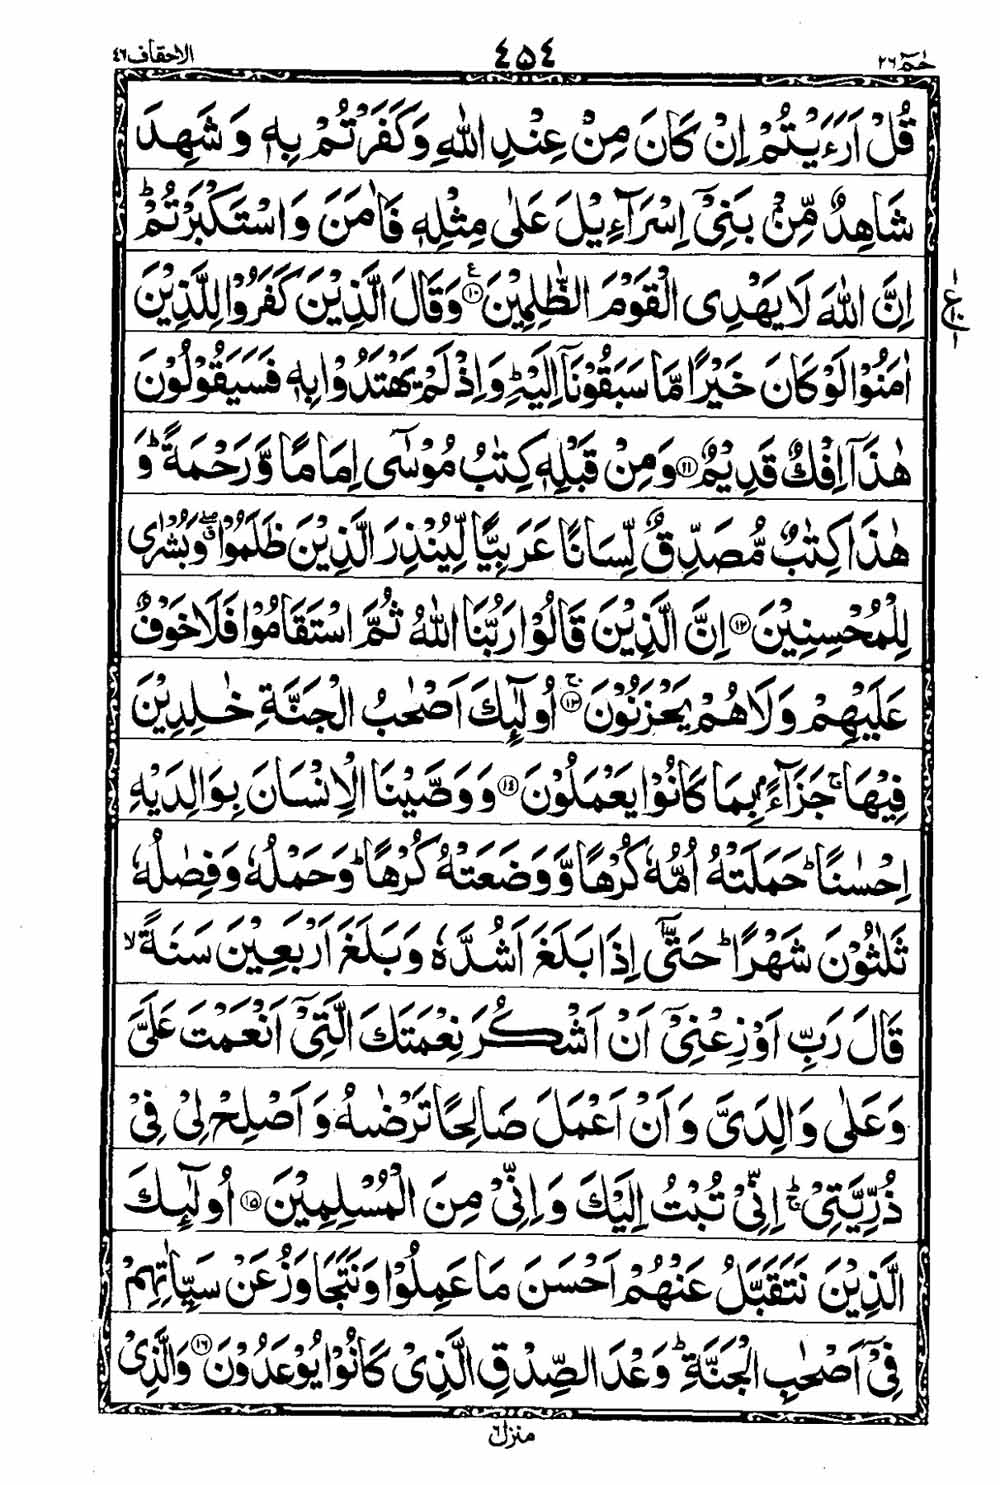 حٰمٓ ٢٦ ٤٥٤ الاحقاف ٤٦
قُلْ اَرَءَيْتُمْ اِنْ كَانَ مِنْ عِنْدِ اللّٰهِ وَكَفَرْتُمْ بِهٖ وَ شَهِدَ
شَاهِدٌ مِّنْۢ بَنِىْٓ اِسْرَآءِيْلَ عَلٰى مِثْلِهٖ فَاٰمَنَ وَ اسْتَكْبَرْتُمْ ؕ
اِنَّ اللّٰهَ لَا يَهْدِى الْقَوْمَ الظّٰلِمِيْنَ ۧ ⑩ وَقَالَ الَّذِيْنَ كَفَرُوْا لِلَّذِيْنَ
ع ١٠ ١
اٰمَنُوْا لَوْ كَانَ خَيْرًا مَّا سَبَقُوْنَاۤ اِلَيْهِ ؕ وَ اِذْ لَمْ يَهْتَدُوْا بِهٖ فَسَيَقُوْلُوْنَ
هٰذَاۤ اِفْكٌ قَدِيْمٌ ⑪ وَمِنْ قَبْلِهٖ كِتٰبُ مُوْسٰٓى اِمَامًا وَّ رَحْمَةً ؕ وَ
هٰذَا كِتٰبٌ مُّصَدِّقٌ لِّسَانًا عَرَبِيًّا لِّيُنْذِرَ الَّذِيْنَ ظَلَمُوْا ۖق وَ بُشْرٰى
لِلْمُحْسِنِيْنَ ⑫ اِنَّ الَّذِيْنَ قَالُوْا رَبُّنَا اللّٰهُ ثُمَّ اسْتَقَامُوْا فَلَا خَوْفٌ
عَلَيْهِمْ وَلَا هُمْ يَحْزَنُوْنَ ۚ ⑬ اُولٰٓئِكَ اَصْحٰبُ الْجَنَّةِ خٰلِدِيْنَ
فِيْهَا ۚ جَزَآءًۢ بِمَا كَانُوْا يَعْمَلُوْنَ ⑭ وَ وَصَّيْنَا الْاِنْسَانَ بِوَالِدَيْهِ
اِحْسٰنًا ؕ حَمَلَتْهُ اُمُّهٗ كُرْهًا وَّ وَضَعَتْهُ كُرْهًا ؕ وَحَمْلُهٗ وَ فِصٰلُهٗ
ثَلٰثُوْنَ شَهْرًا ؕ حَتّٰٓى اِذَا بَلَغَ اَشُدَّهٗ وَ بَلَغَ اَرْبَعِيْنَ سَنَةً ۙ
قَالَ رَبِّ اَوْزِعْنِىْٓ اَنْ اَشْكُرَ نِعْمَتَكَ الَّتِىْٓ اَنْعَمْتَ عَلَىَّ
وَعَلٰى وَالِدَىَّ وَ اَنْ اَعْمَلَ صَالِحًا تَرْضٰىهُ وَ اَصْلِحْ لِىْ فِىْ
ذُرِّيَّتِىْ ۚؕ اِنِّىْ تُبْتُ اِلَيْكَ وَ اِنِّىْ مِنَ الْمُسْلِمِيْنَ ⑮ اُولٰٓئِكَ
الَّذِيْنَ نَتَقَبَّلُ عَنْهُمْ اَحْسَنَ مَا عَمِلُوْا وَ نَتَجَاوَزُ عَنْ سَيِّاٰتِهِمْ
فِىْٓ اَصْحٰبِ الْجَنَّةِ ؕ وَعْدَ الصِّدْقِ الَّذِىْ كَانُوْا يُوْعَدُوْنَ ⑯ وَالَّذِىْ
منزل ٦